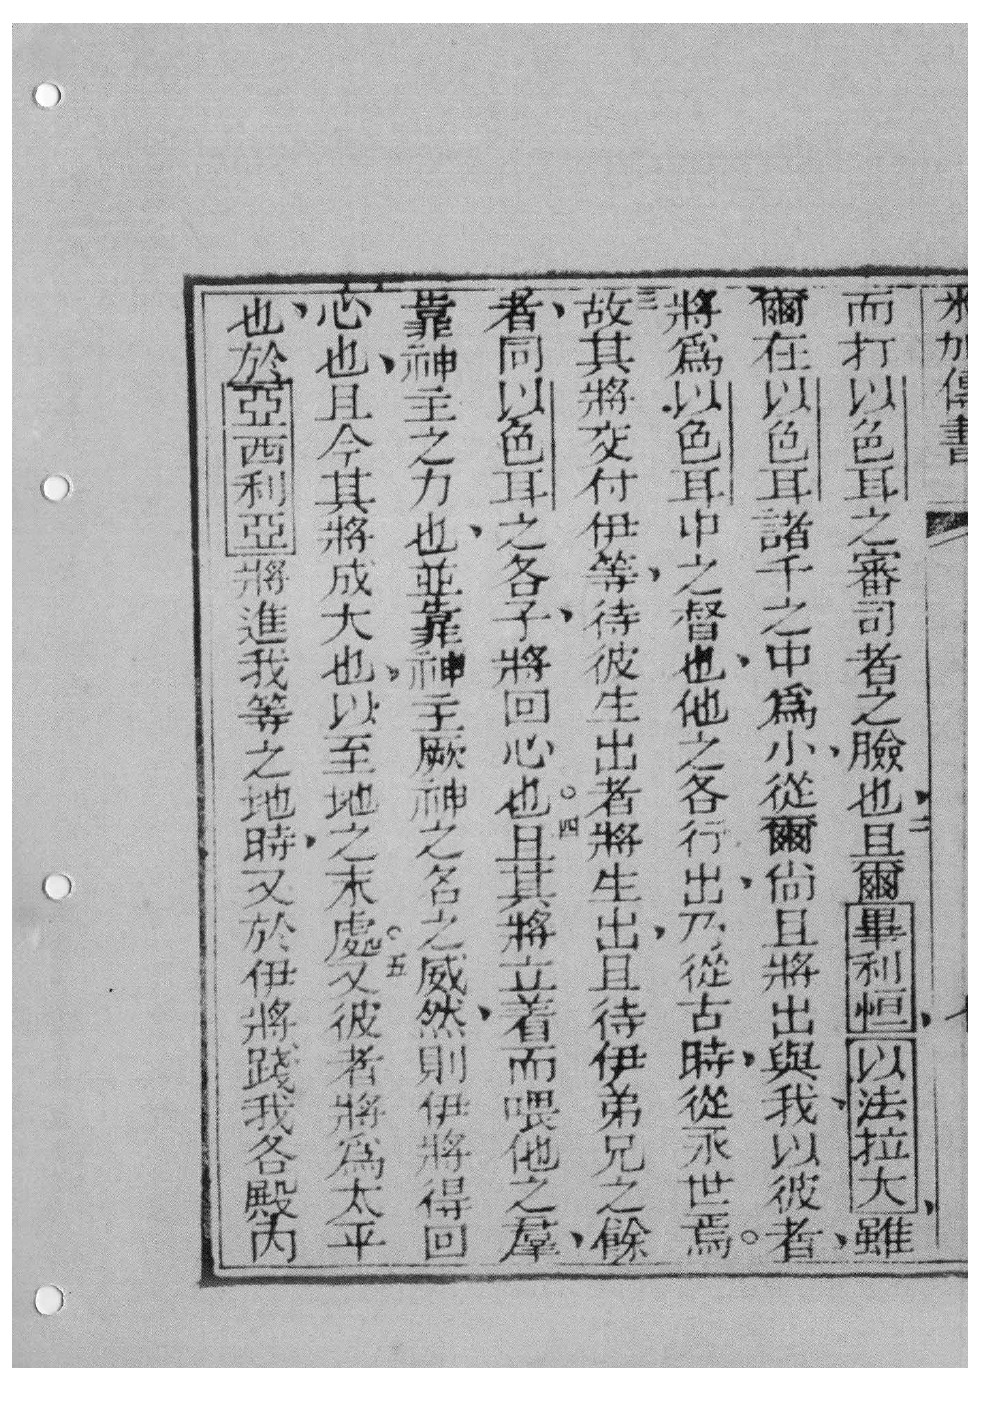 米加傳書
而打以色耳之審司者之臉也、二且爾畢利恒、以法拉大、雖
爾在以色耳諸千之中爲小、從爾尙且將出與我、以彼者、
將爲以色耳中之督也、他之各行出、乃從古時、從永世焉。
三故其將交付伊等、待彼生出者將生出、且待伊弟兄之餘
者、同以色耳之各子、將回心也。四且其將立着而喂他之羣、
靠神主之力也、並靠神主厥神之名之威然、則伊將得回
心也、且今其將成大也、以至地之末處。五又彼者將爲太平
也、於亞西利亞將進我等之地時、又於伊將踐我各殿內